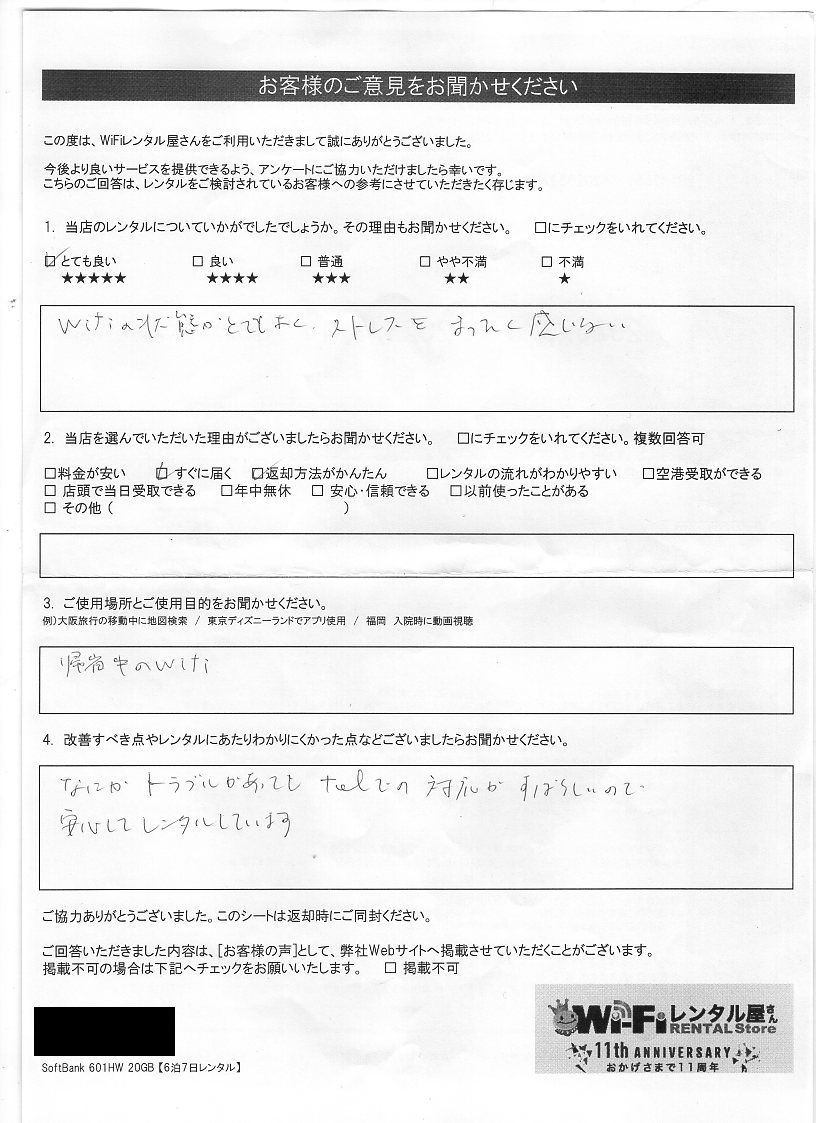 お客様のご意見をお聞かせください
この度は、WiFiレンタル屋さんをご利用いただきまして誠にありがとうございました。
今後より良いサービスを提供できるよう、アンケートにご協力いただけましたら幸いです。
こちらのご回答は、レンタルをご検討されているお客様への参考にさせていただきたく存じます。
1. 当店のレンタルについていかがでしたでしょうか。その理由もお聞かせください。 □にチェックをいれてください。
☑ とても良い □ 良い □ 普通 □ やや不満 □ 不満
★★★★★ ★★★★ ★★★ ★★ ★
Wifiの状態がとてもよく、ストレスを まったく感じない
2. 当店を選んでいただいた理由がございましたらお聞かせください。 □にチェックをいれてください。複数回答可
□料金が安い ☑ すぐに届く ☑返却方法がかんたん □レンタルの流れがわかりやすい □空港受取ができる
□ 店頭で当日受取できる □年中無休 □ 安心・信頼できる □以前使ったことがある
□ その他 ( )
3. ご使用場所とご使用目的をお聞かせください。
例)大阪旅行の移動中に地図検索 / 東京ディズニーランドでアプリ使用 / 福岡 入院時に動画視聴
帰省中のWifi
4. 改善すべき点やレンタルにあたりわかりにくかった点などございましたらお聞かせください。
なにか トラブルがあっても telでの 対応が すばらしいので
安心して レンタルしています
ご協力ありがとうございました。このシートは返却時にご同封ください。
ご回答いただきました内容は、[お客様の声]として、弊社Webサイトへ掲載させていただくことがございます。
掲載不可の場合は下記へチェックをお願いいたします。 □ 掲載不可
Wi-Fiレンタル屋さん
RENTAL Store
11th ANNIVERSARY
おかげさまで11周年
SoftBank 601HW 20GB【6泊7日レンタル】